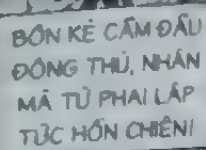 BỐN KẺ CẦM ĐẦU
ĐÔNG THỦ, NHÂN
MÃ TỬ PHAI LẬP
TỨC HỖN CHIẾN!